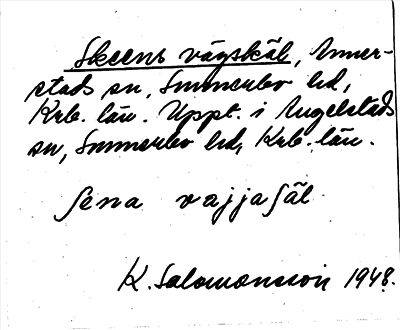 Skeens vägskäl, Anner-
stads sn, Sunnerbo hd,
Krb. län. Uppt. i Angelstads
sn, Sunnerbo hd, Krb. län.
ſena vajjaſäl
K. Salomonsson 1948.